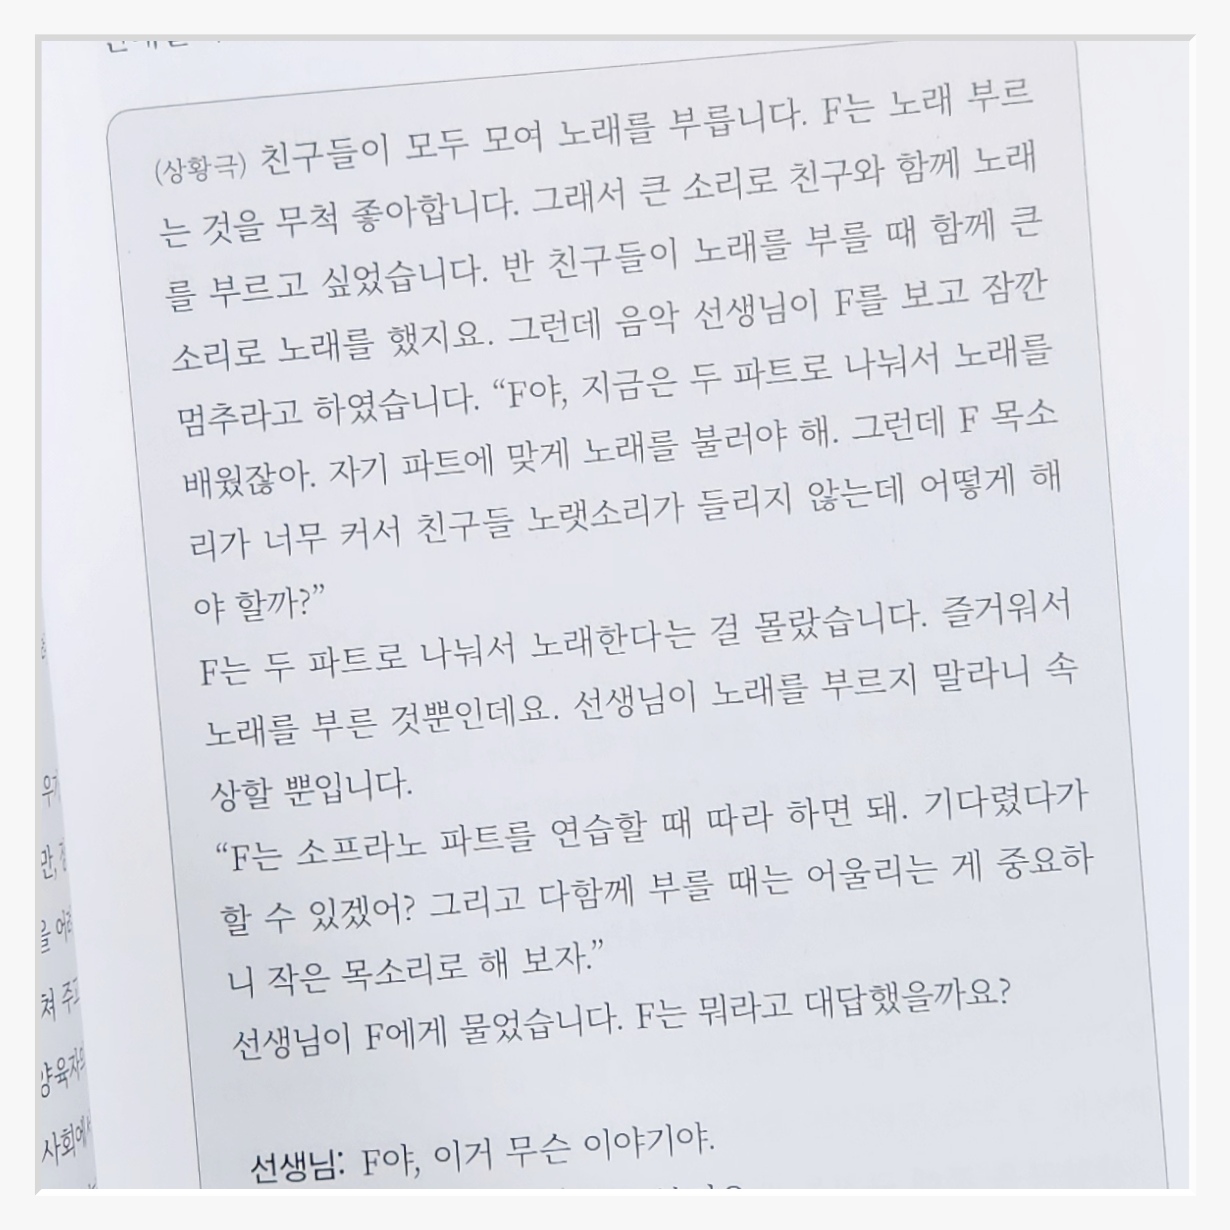 (상황극) 친구들이 모두 모여 노래를 부릅니다. F는 노래 부르
는 것을 무척 좋아합니다. 그래서 큰 소리로 친구와 함께 노래
를 부르고 싶었습니다. 반 친구들이 노래를 부를 때 함께 큰
소리로 노래를 했지요. 그런데 음악 선생님이 F를 보고 잠깐
멈추라고 하였습니다. “F야, 지금은 두 파트로 나눠서 노래를
배웠잖아. 자기 파트에 맞게 노래를 불러야 해. 그런데 F 목소
리가 너무 커서 친구들 노랫소리가 들리지 않는데 어떻게 해
야 할까?”
F는 두 파트로 나눠서 노래한다는 걸 몰랐습니다. 즐거워서
노래를 부른 것뿐인데요. 선생님이 노래를 부르지 말라니 속
상할 뿐입니다.
“F는 소프라노 파트를 연습할 때 따라 하면 돼. 기다렸다가
할 수 있겠어? 그리고 다함께 부를 때는 어울리는 게 중요하
니 작은 목소리로 해 보자.”
선생님이 F에게 물었습니다. F는 뭐라고 대답했을까요?
선생님: F야, 이거 무슨 이야기야.
을 어
쳐 주
양육자
사회에